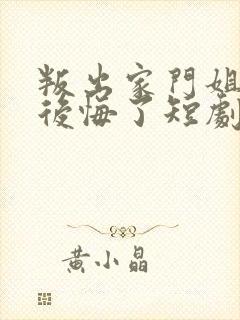 叛出家門姐
後悔了短劇
黃小晶